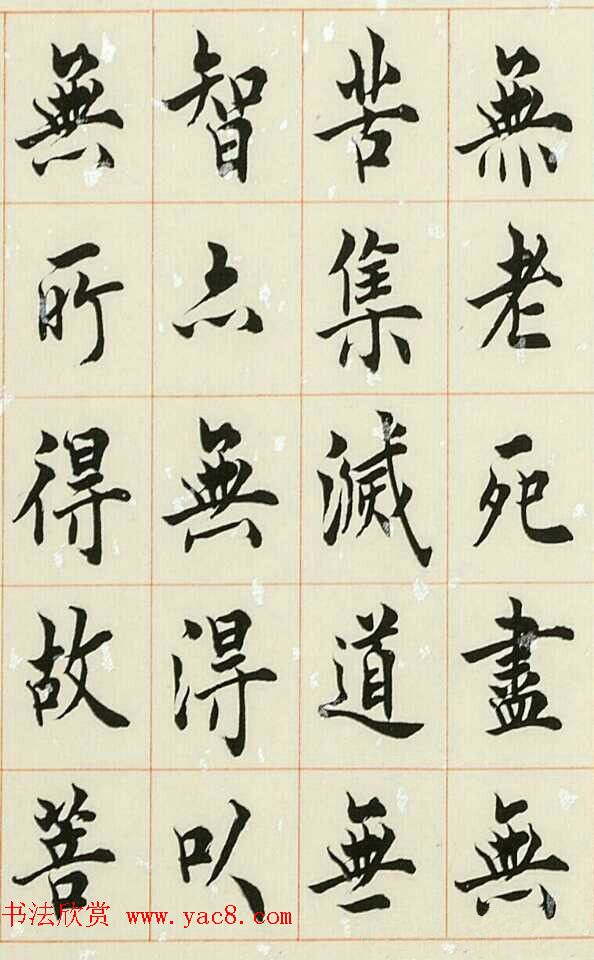 無老死盡無
苦集滅道無
智亦無得以
無所得故菩
书法欣赏 www.yac8.com